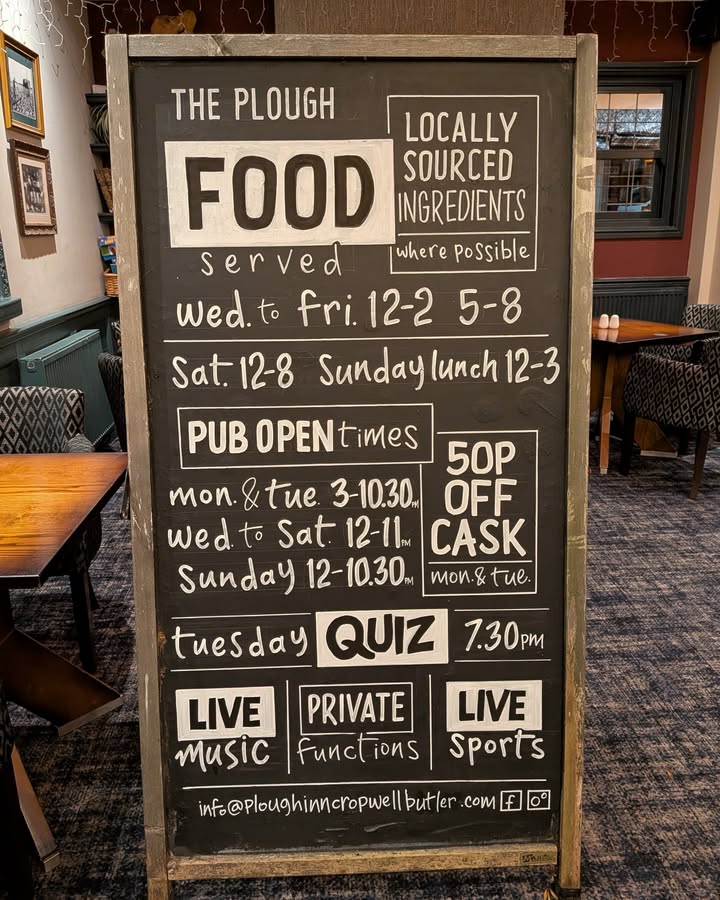 THE PLOUGH
FOOD
served
LOCALLY
SOURCED
INGREDIENTS
where possible
wed. to fri. 12-2 5-8
Sat. 12-8 Sunday lunch 12-3
PUB OPEN times
mon. & tue. 3-10.30PM
wed. to Sat. 12-11PM
Sunday 12-10.30PM
50P
OFF
CASK
mon. & tue.
tuesday QUIZ 7.30PM
LIVE
music
PRIVATE
functions
LIVE
sports
info@ploughinncropwellbutler.com